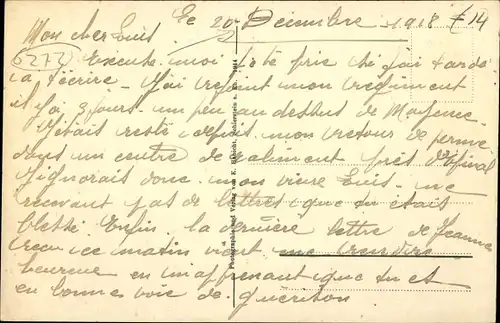 Le 20 Décembre 1918 £ 14
Mon cher Louis
6272 Excuse moi je te prie si j'ai tardé
à t'écrire - J'ai rejoint mon régiment
il y a 3 jours un peu au dessus de Mayence
J'étais resté depuis mon retour de perme
dans un centre de ralliment près d'Epinal
J'ignorais donc mon vieux Louis ne
recevant pas de lettres que tu étais
blessé. Enfin la dernière lettre de Jeanne
reçu ce matin vient me rendre
heureux en m'apprenant que tu est
en bonnes voie de guérison
Photographie und Verlag von E.